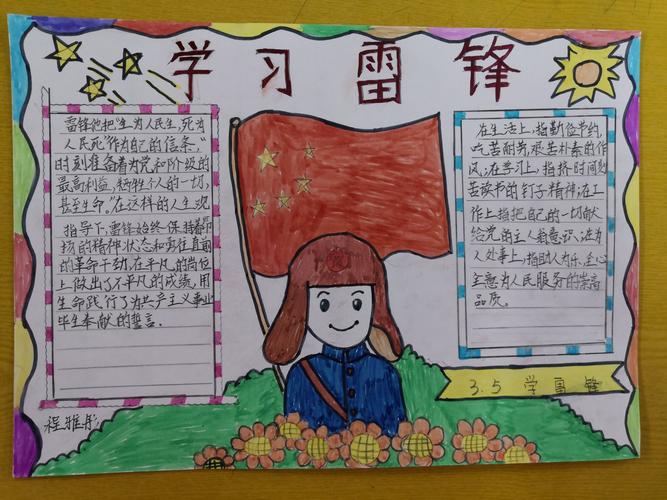 学习雷锋
雷锋他把“生为人民生,死为
人民死”作为自己的信条。“
时刻准备着为党和阶级的
最高利益,牺牲个人的一切,
甚至生命。”在这样的人生观
指导下,雷锋始终保持着昂
扬的精神状态和勇往直前
的革命干劲,在平凡的岗位
上做出了不平凡的成绩,用
生命践行了为共产主义事业
毕生奉献的誓言。
在生活上,指勤俭节约,
吃苦耐劳,艰苦朴素的作
风;在学习上,指挤时间刻
苦读书的钉子精神;在工
作上指把自己的一切献
给党的主人翁意识;在为
人处事上,指助人为乐,全心
全意为人民服务的崇高
品质。
3.5 学雷锋
程雅彤